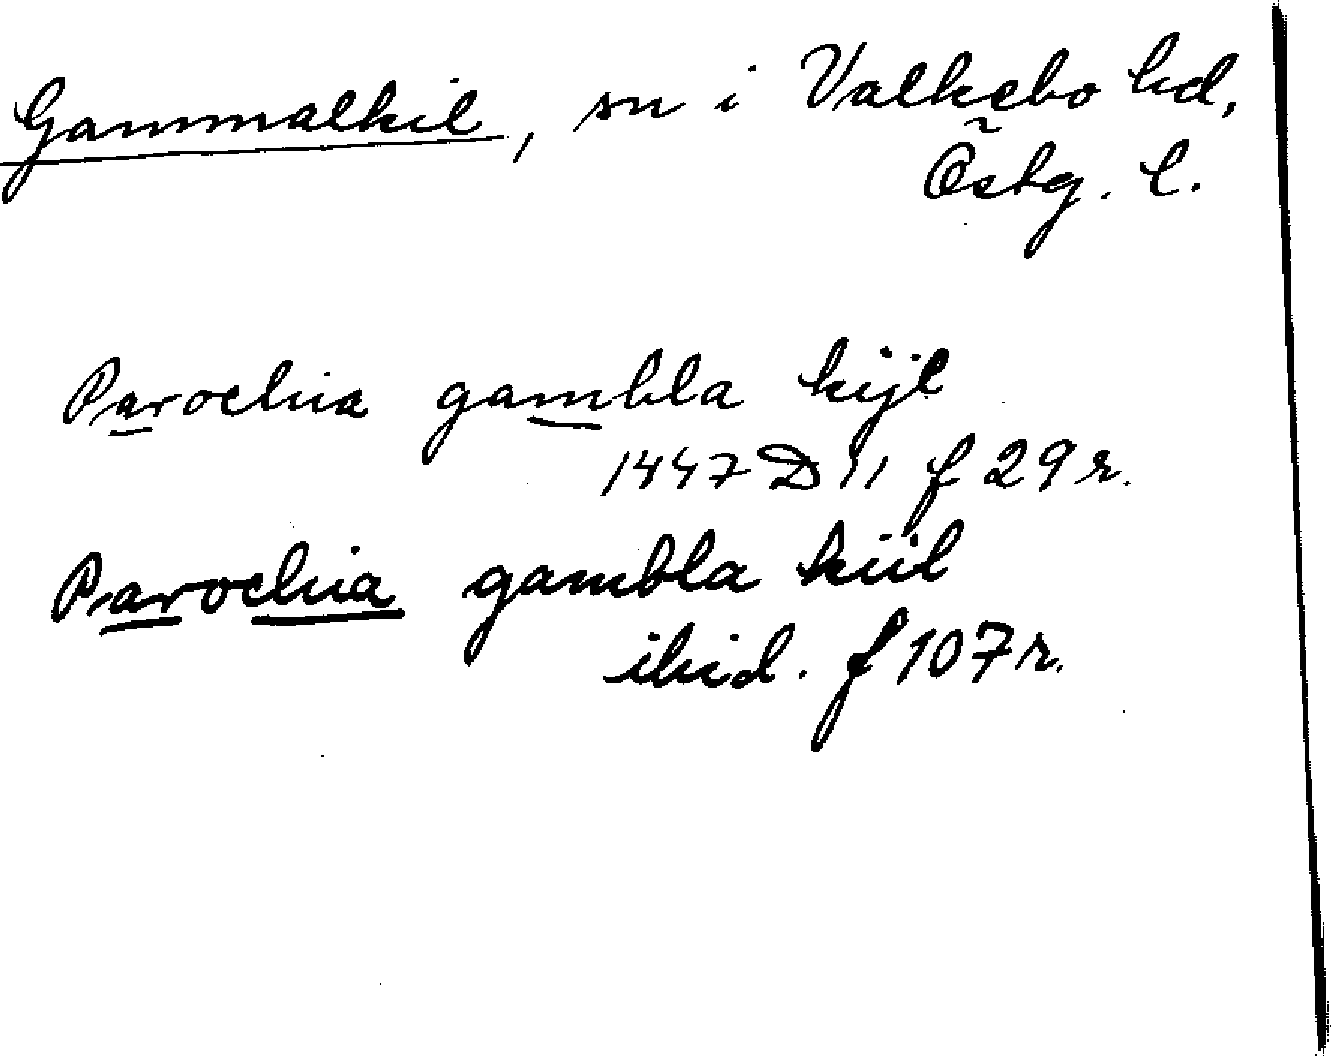 Gammalkil, sn i Valkebo hd,
Östg. l.
Parochia gambla kijl
1447 D 11 f 29 r.
Parochia gambla kiil
ibid. f 107 r.